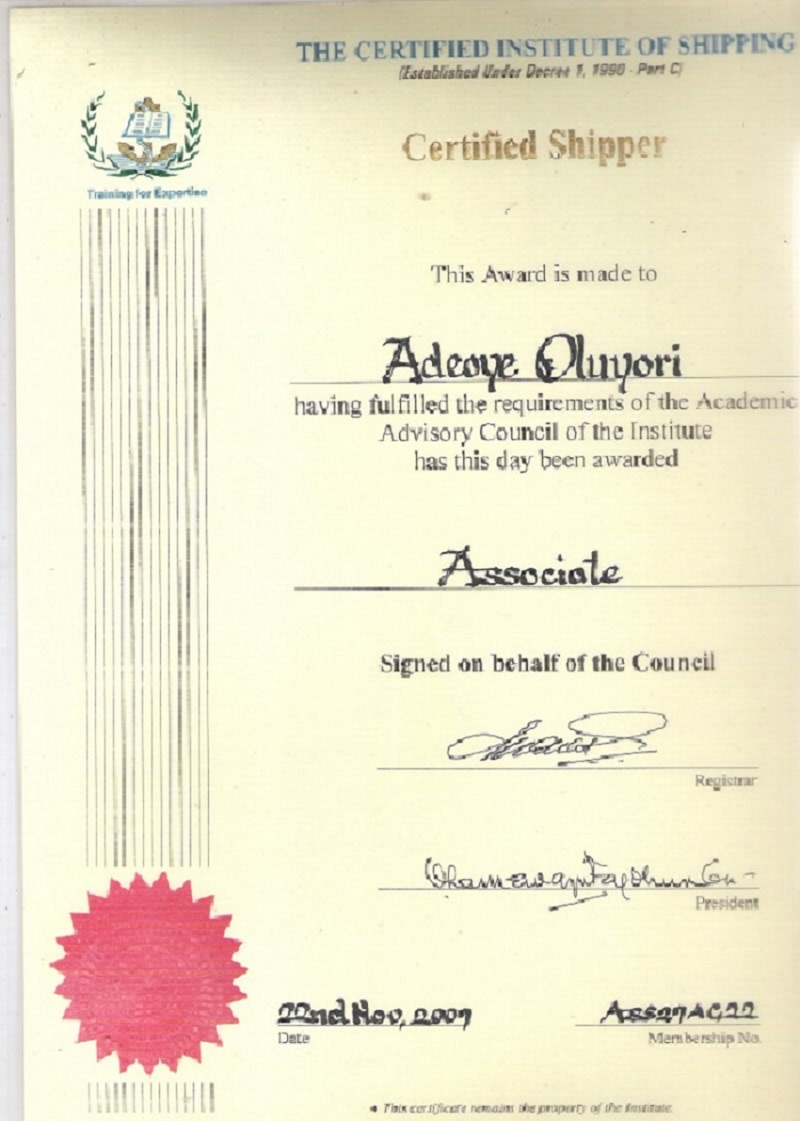 THE CERTIFIED INSTITUTE OF SHIPPING
(Established Under Decree 1, 1990 - Part C)
Certified Shipper
Training for Expertise
This Award is made to
Adeoye Oluyori
having fulfilled the requirements of the Academic
Advisory Council of the Institute
has this day been awarded
Associate
Signed on behalf of the Council
Registrar
President
22nd Nov, 2007
Date
Membership No.
This certificate remains the property of the Institute.